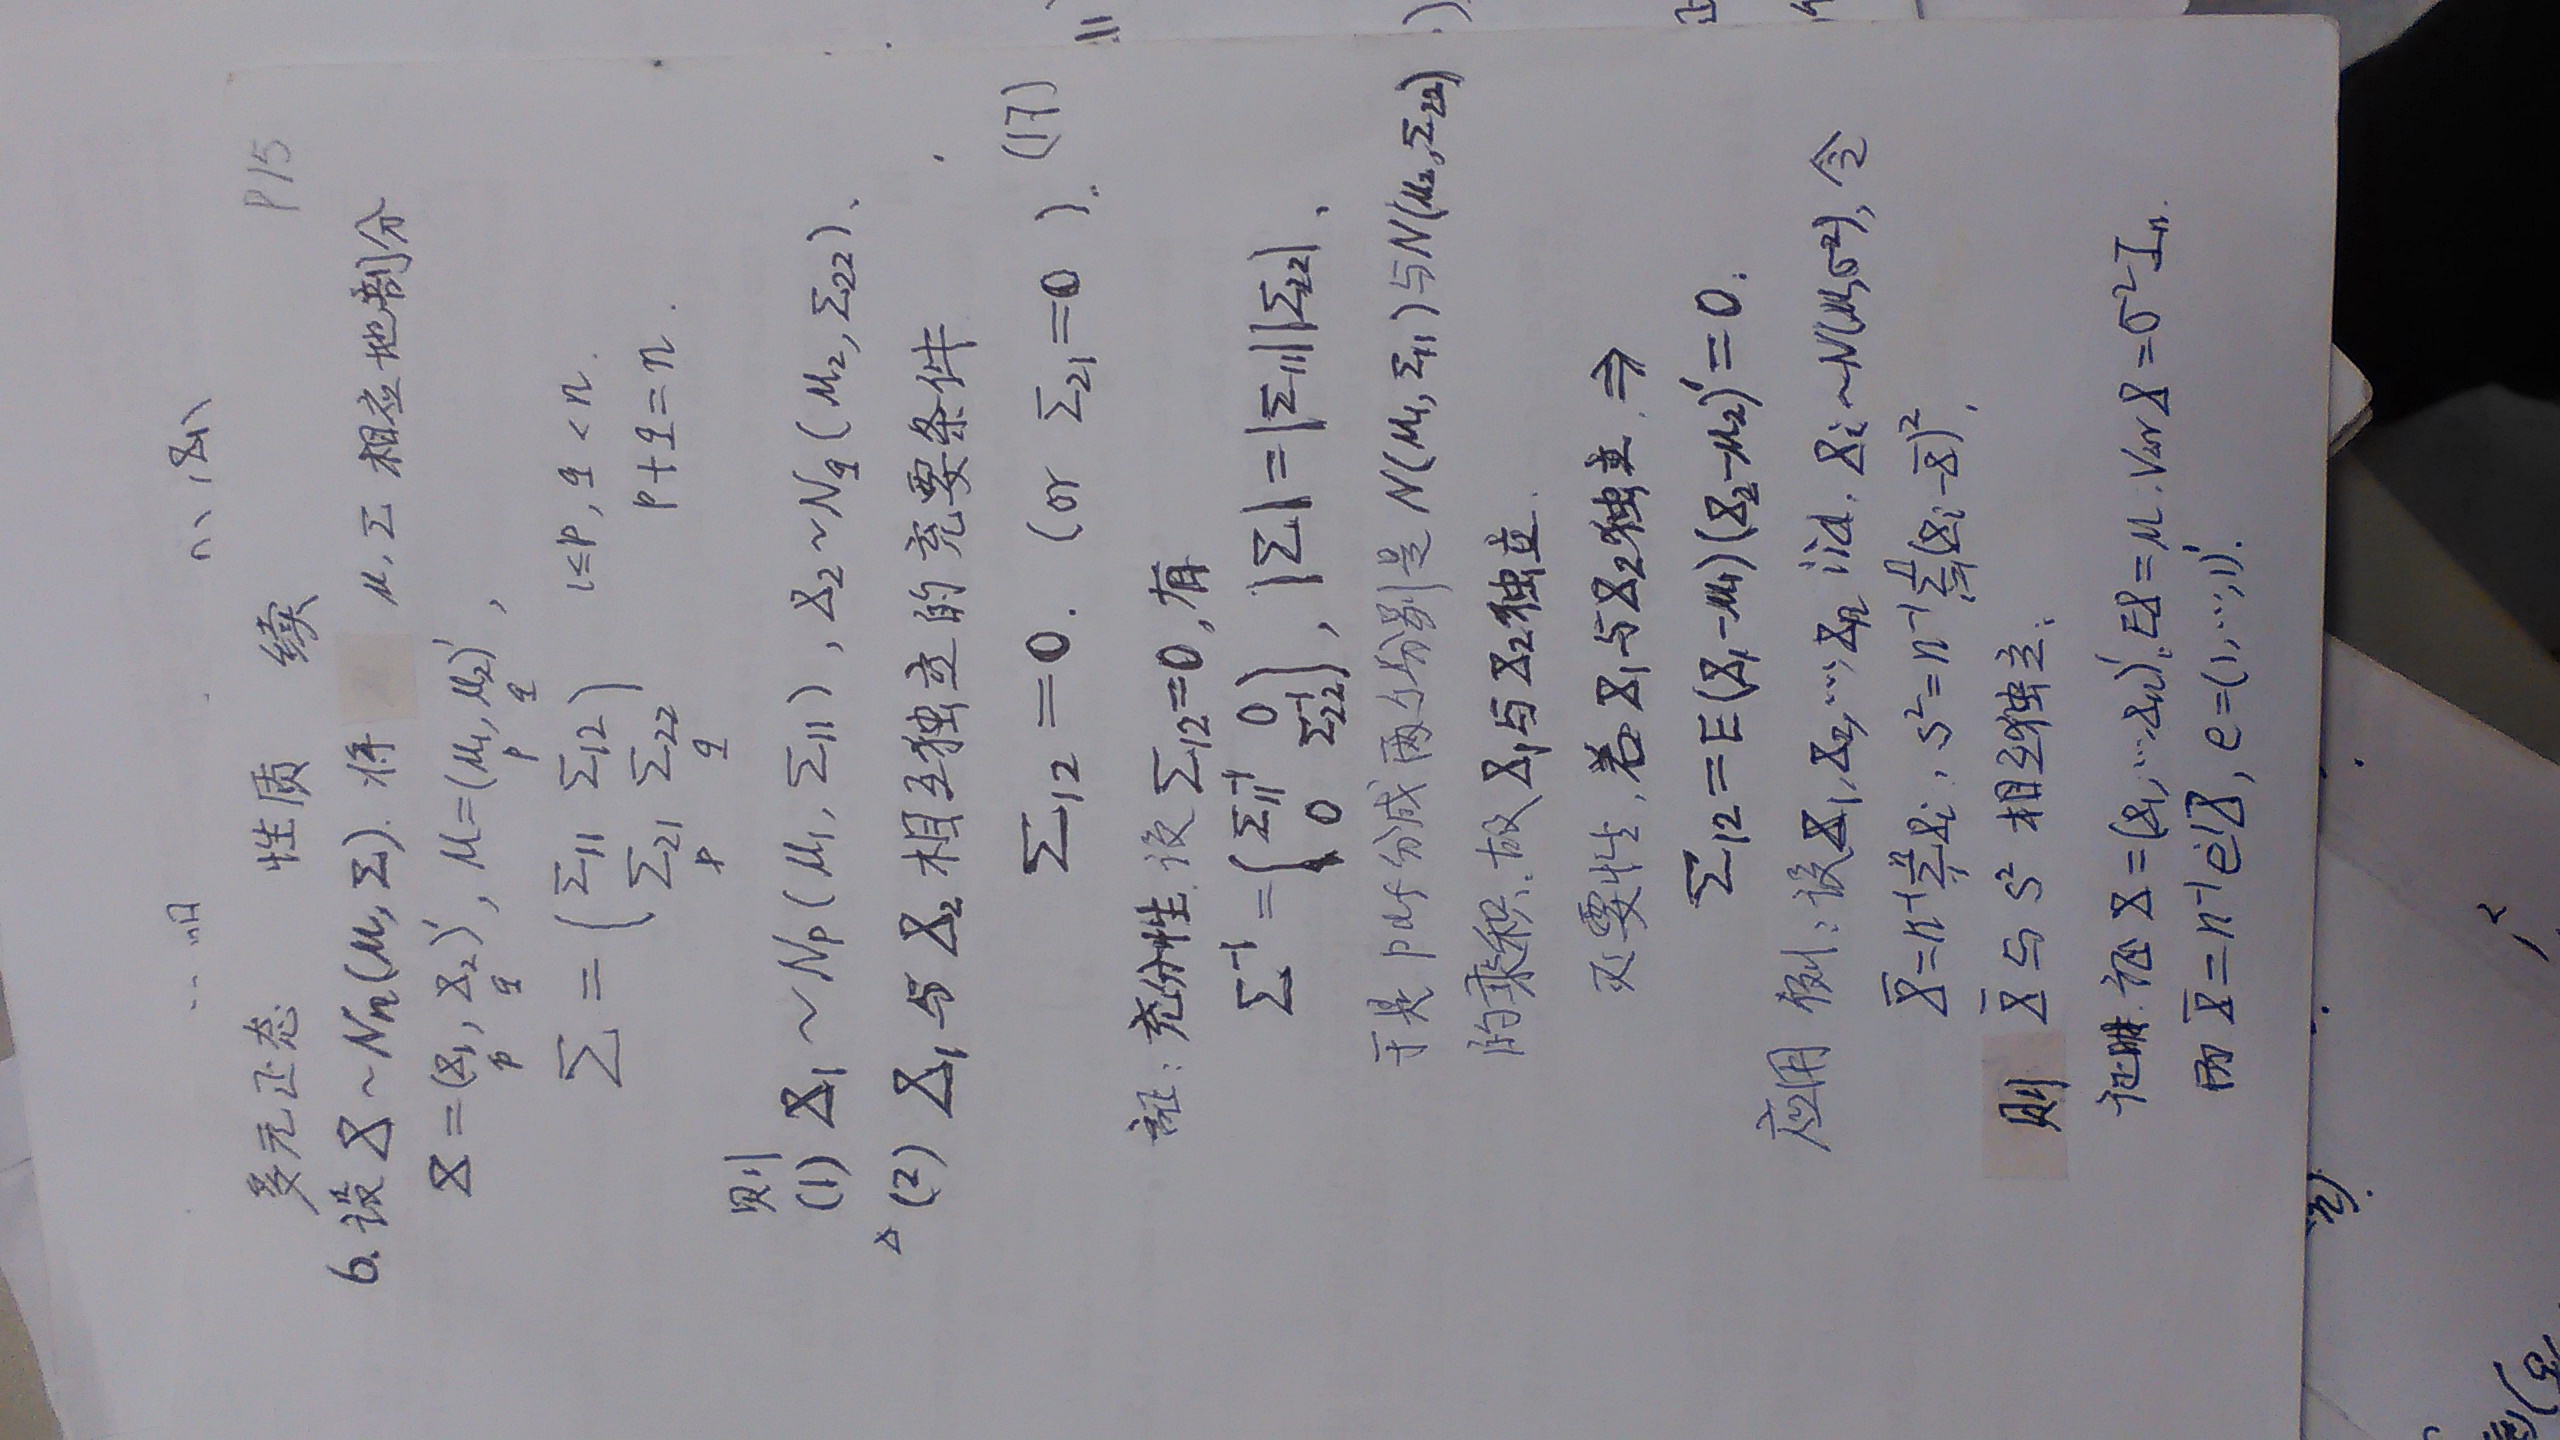 P15
多元正态 性质 续
6. 设 X ~ Nn(μ, Σ). 将 μ, Σ 相应地剖分
X = (X₁, X₂)', μ = (μ₁, μ₂)',
p q p q
Σ = ( Σ₁₁ Σ₁₂ ) 1≤p, q < n.
( Σ₂₁ Σ₂₂ ) p + q = n.
p q
则
(1) X₁ ~ Np(μ₁, Σ₁₁), X₂ ~ Nq(μ₂, Σ₂₂).
△ (2) X₁ 与 X₂ 相互独立的充要条件
Σ₁₂ = 0. (or Σ₂₁ = 0). (17)
证: 充分性. 设 Σ₁₂ = 0, 有
Σ⁻¹ = ( Σ₁₁⁻¹ 0 ; 0 Σ₂₂⁻¹ ), |Σ| = |Σ₁₁||Σ₂₂|.
于是 pdf 分成两个分别是 N(μ₁, Σ₁₁) 与 N(μ₂, Σ₂₂)
的乘积. 故 X₁ 与 X₂ 独立.
必要性, 若 X₁ 与 X₂ 独立. ⇒
Σ₁₂ = E(X₁-μ₁)(X₂-μ₂)' = 0.
应用 例: 设 X₁, X₂, ..., Xn iid. Xi ~ N(μ, σ²), 令
X̄ = n⁻¹ Σ Xi, S² = n⁻¹ Σ (Xi - X̄)²,
则 X̄ 与 S² 相互独立.
证明: 记 X = (X₁, ... Xn)', EX = μ. Var X = σ² In.
而 X̄ = n⁻¹ e'X, e = (1, ..., 1)'.